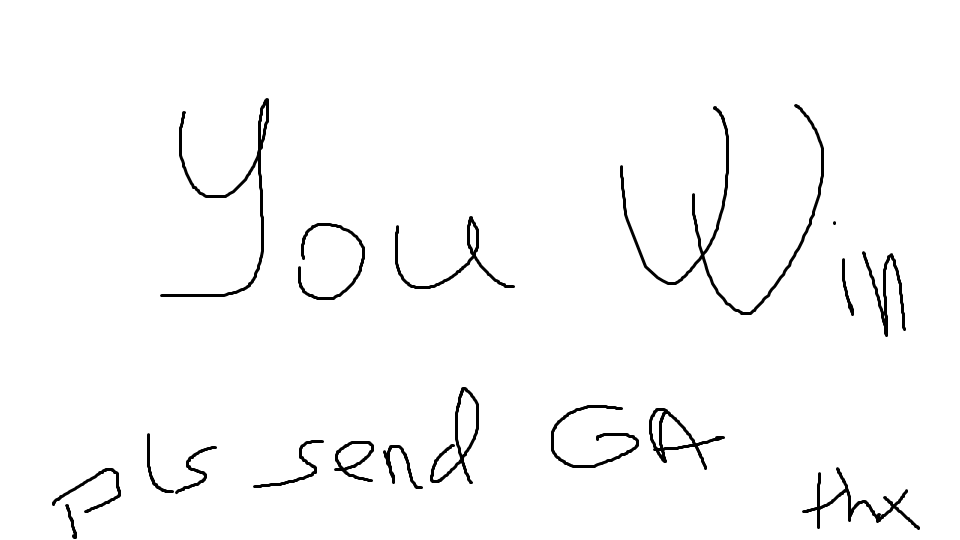 You Win
pls send GA
thx